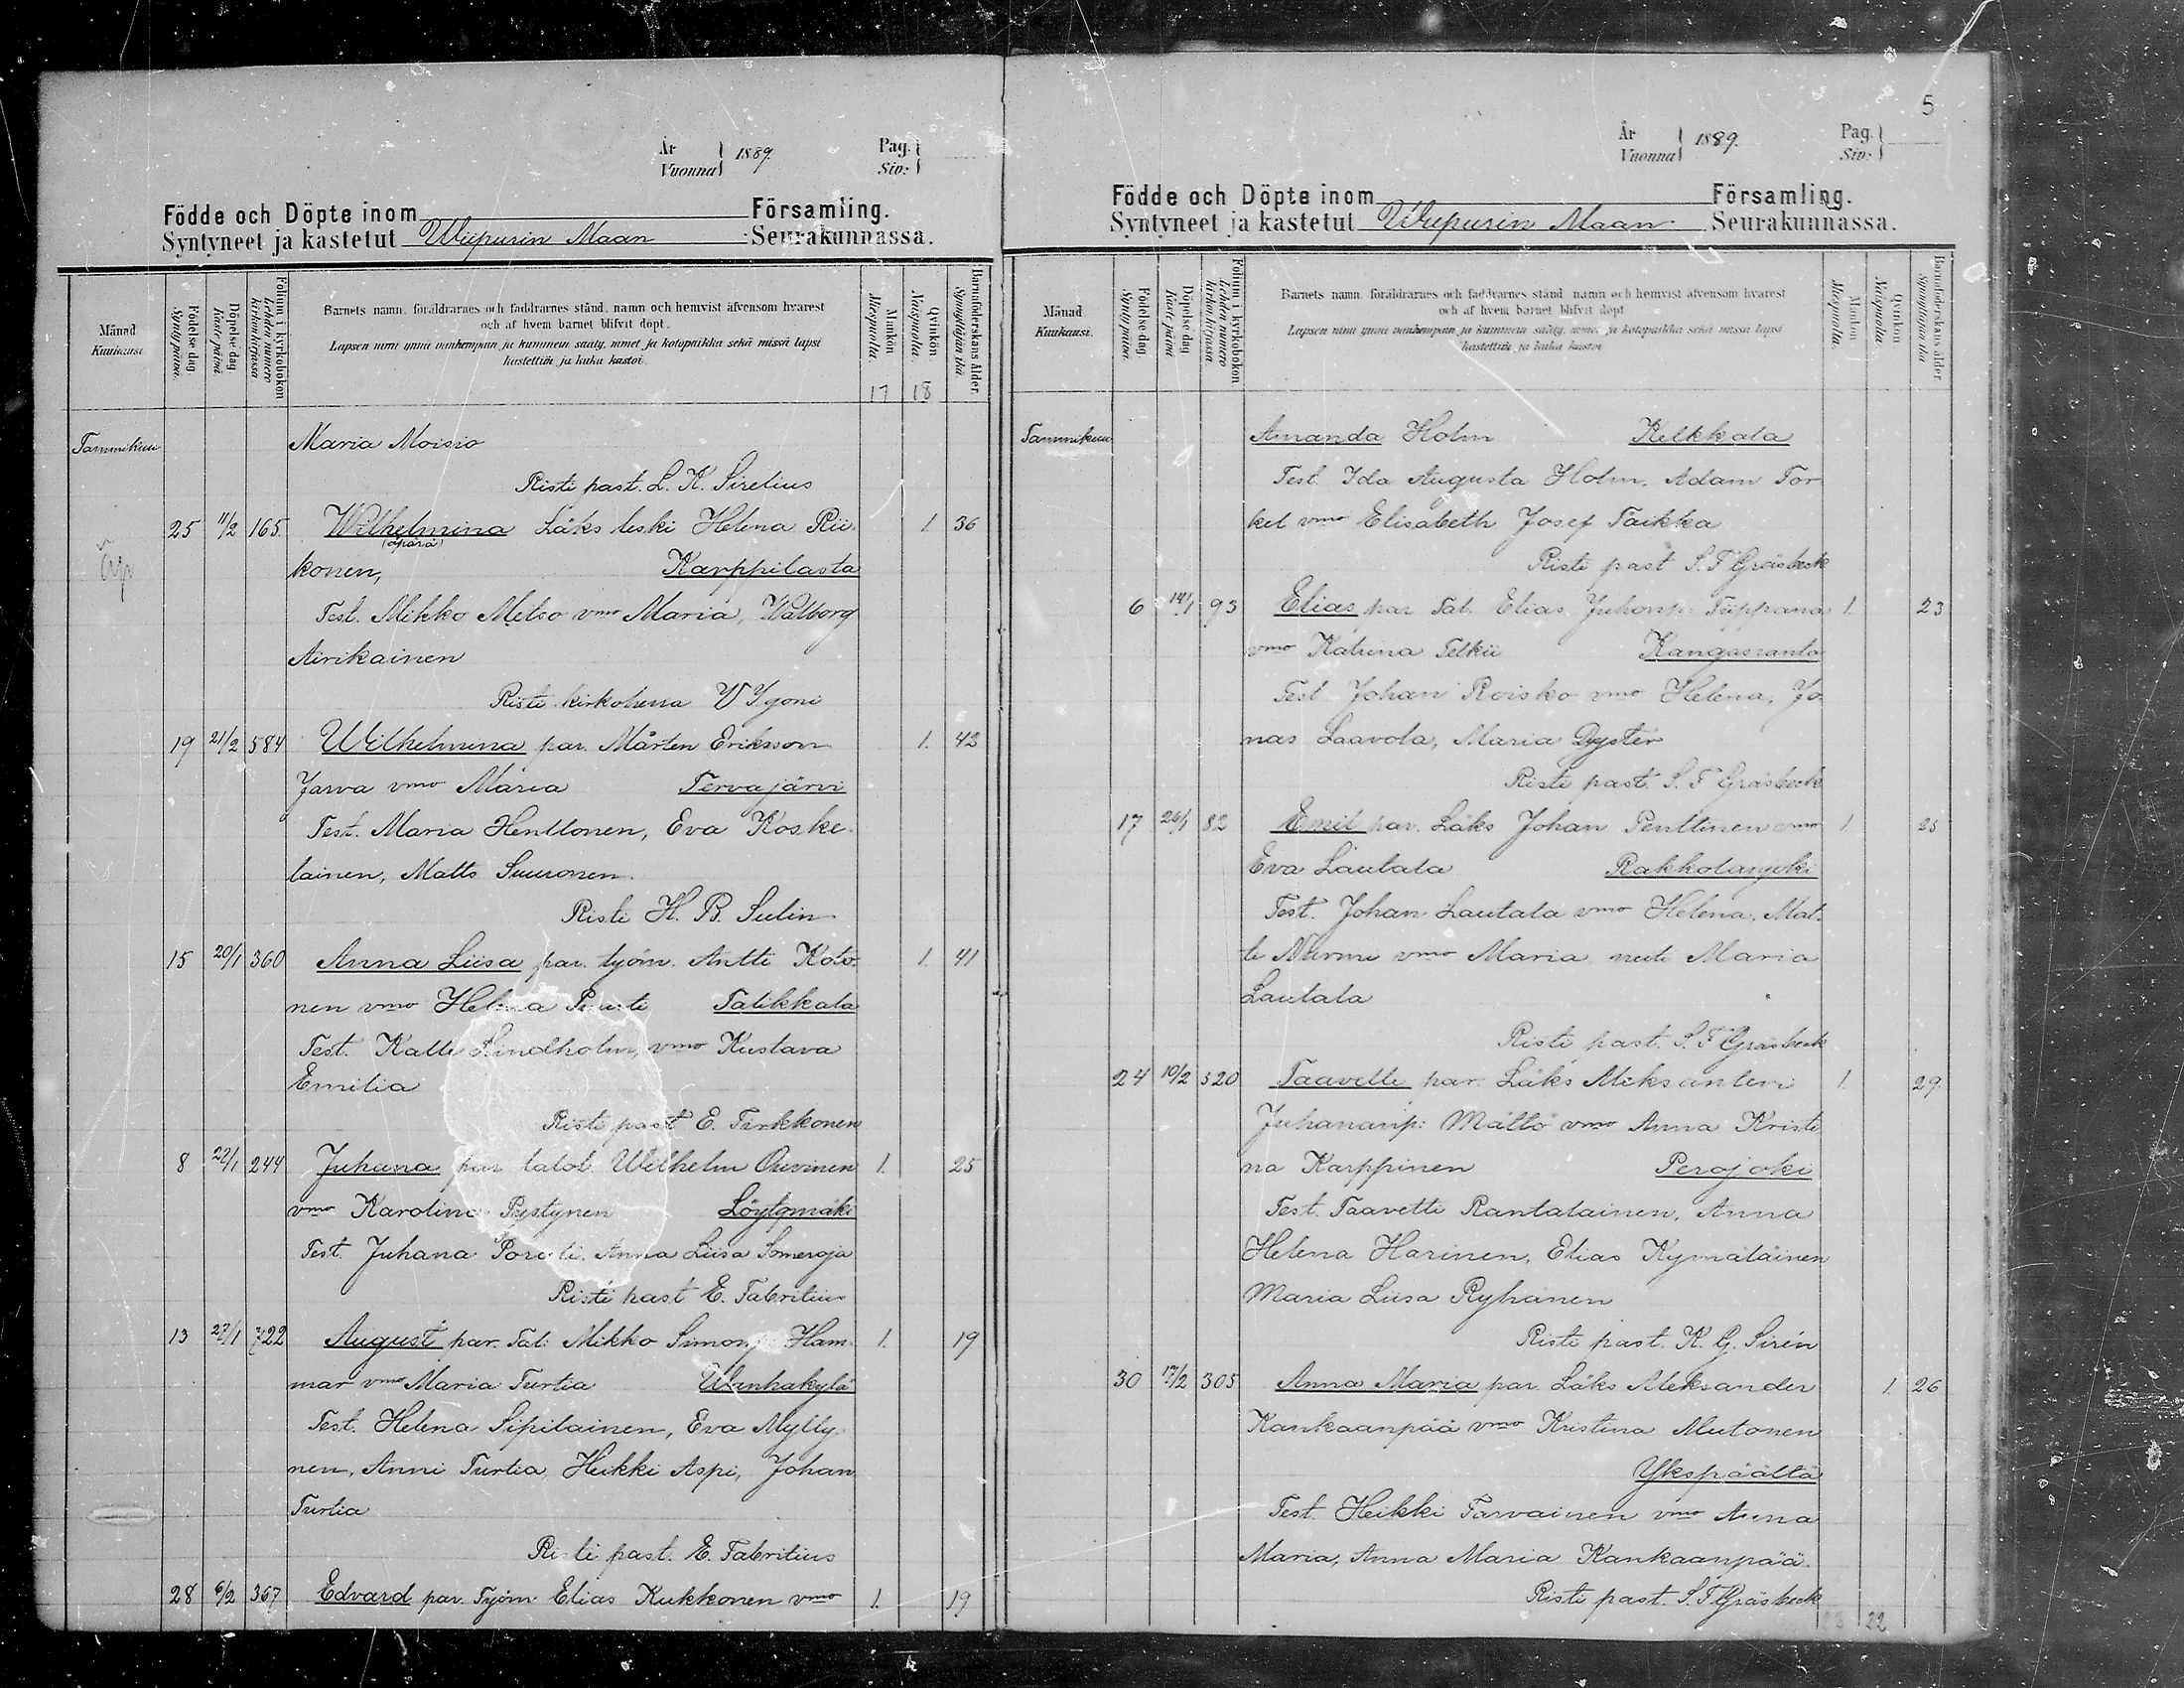 År
Vuonna
1889.
Pag.
Siv:
Födde och Döpte inom Församling.
Syntyneet ja kastetut Wiipurin Maan Seurakunnassa.
Månad
Kuukausi
Födelse dag.
Synty päivä.
Döpelse dag
Kaste päivä
Folium i kyrkoboken
Lehden numero kirkonkirjassa
Barnets namn, föräldrarnes och faddrarnes stånd, namn och hemvist äfvensom hvarest
och af hvem barnet blifvit döpt.
Lapsen nimi ynnä vanhempain ja kummein sääty, nimet ja kotopaikka sekä missä lapsi
kastettiin ja kuka kastoi.
Mankön
Miespuolta.
Qvinkön
Naispuolta.
Barnaföderskans ålder.
Synnyttäjän ikä.
17 18
Tammikuu Maria Moisio
Risti past. L. K. Sirelius
25 11/2 165. Wilhelmina Läks leski Helena Rii- 1. 36
(äpärä)
Äp
konen, Karppilasta
Test. Mikko Metso vmo Maria, Walborg
Airikainen
Risti kirkoherra W Ygoni
19 21/2 584 Wilhelmina par. Mårten Eriksson 1. 42
Jarva vmo Maria Tervajärvi
Test. Maria Henttonen, Eva Koske-
lainen, Matts Suuronen.
Risti H. B. Sulin
15 20/1 360 Anna Liisa par. työm. Antti Koto- 1. 41
nen vmo Helena Talikkala
Test. Kalle Lindholm, vmo Kustava
Emilia
Risti past E. Tirkkonen
8 22/1 244 Juhana par talol. Wilhelm Ouvinen 1. 25
vmo Karolina Pystynen Löytömäki
Test. Juhana Anna Liisa Someroja
Risti past E. Fabritius
13 27/1 722 August par. Tal: Mikko Simonp Ham- 1. 19
mar vmo Maria Turtia Wanhakylä
Test. Helena Sipilainen, Eva Mylly-
nen, Anni Turtia, Heikki Aspi, Johan
Turtia
Risti past. E. Fabritius
28 6/2 367 Edvard par. Työm Elias Kukkonen vmo 1. 19
5
År
Vuonna
1889.
Pag.
Siv:
Födde och Döpte inom Församling.
Syntyneet ja kastetut Wiipurin Maan Seurakunnassa.
Månad
Kuukausi.
Födelse dag
Synty päivä.
Döpelse dag
Kaste päivä
Folium i kyrkoboken
Lehden numero kirkonkirjassa.
Barnets namn, föräldrarnes och faddrarnes stånd, namn och hemvist äfvensom hvarest
och af hvem barnet blifvit döpt
Lapsen nimi ynnä vanhempain ja kummein sääty, nimet ja kotopaikka sekä missä lapsi
kastettiin ja kuka kastoi
Mankön
Miespuolta.
Qvinkön
Naispuolta.
Barnaföderskans ålder
Synnyttäjän ikä
Tammikuu Amanda Holm Kelkkala
Test Ida Augusta Holm, Adam Tor-
kel vmo Elisabeth Josef Taikka
Risti past S. F Gräsbeck
6 14/1 93 Elias par Tal. Elias Juhonp: Tiippana 1. 23
vmo Katrina Telkii Kangasranta
Test Johan Roisko vmo Helena, Jo-
nas Laavola, Maria Dyster
Risti past. S. F Gräsbeck
17 26/1 82 Emil par. Läks Johan Penttinen vmo 1. 25
Eva Lautala Rakkolanjoki
Test. Johan Lautala vmo Helena, Mat-
ti Nurmi vmo Maria neiti Maria
Lautala
Risti past. S. F Gräsbeck
24 10/2 320 Taavetti par. Läks Aleksanteri 1. 29.
Juhananp: Mättö vmo Anna Kristi-
na Karppinen Perojoki
Test. Taavetti Rantalainen, Anna
Helena Harinen, Elias Kymäläinen
Maria Liisa Ryhänen
Risti past. K. G. Sirén
30 17/2 305 Anna Maria par. Läks Aleksander 1. 26
Kankaanpää vmo Kristina Mutonen
Ykspäältä
Test. Heikki Tarvainen vmo Anna
Maria, Anna Maria Kankaanpää.
Risti past. S. F Gräsbeck
23 22